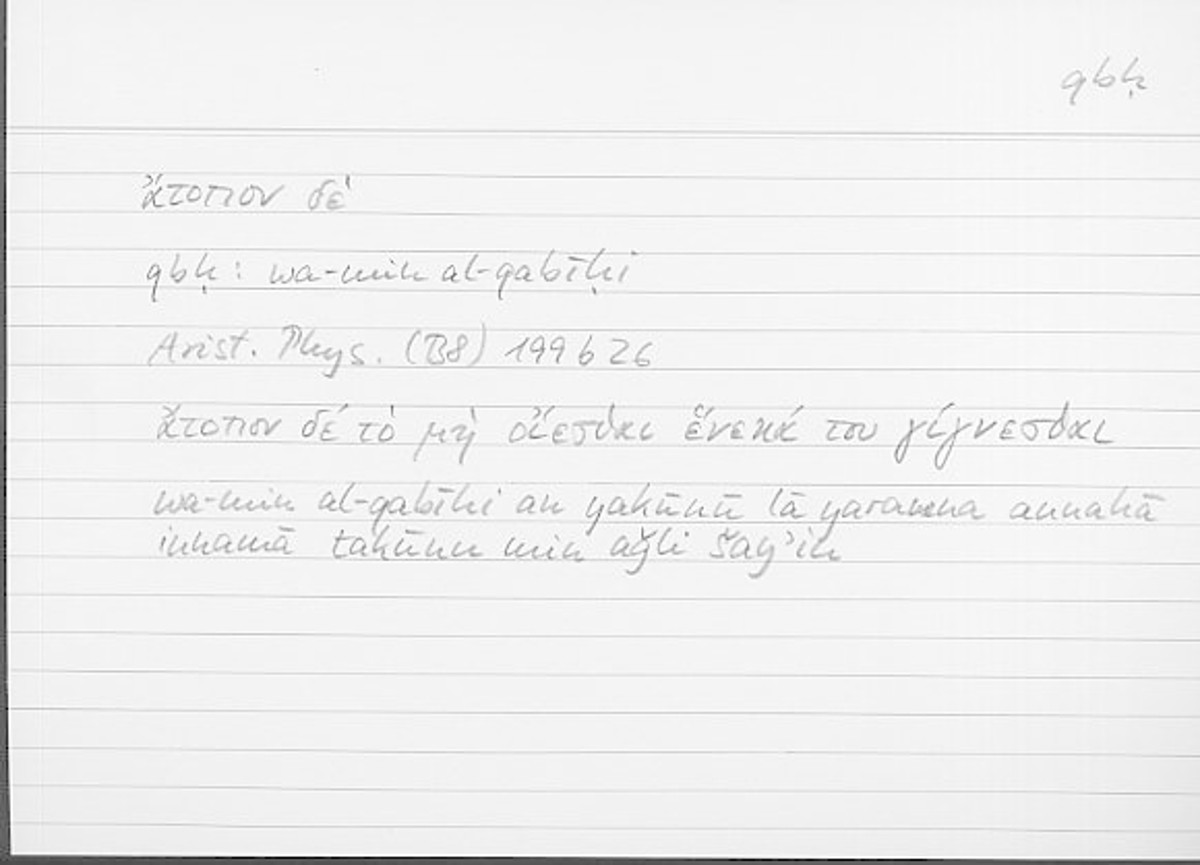 qbḥ
ἄτοπον δέ
qbḥ: wa-min al-qabīḥi
Arist. Phys. (B8) 199 b 26
ἄτοπον δέ τὸ μὴ οἴεσθαι ἕνεκά του γίγνεσθαι
wa-min al-qabīhi an yakūnū lā yarawna annahā
innamā takūnu min aǧli šayʾin